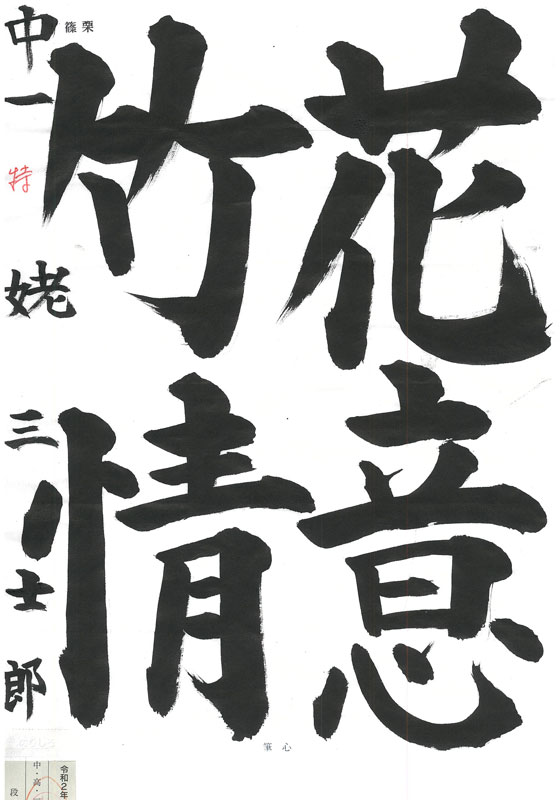 花意
竹情
栗
篠
中一
特
姥
三
士
郎
心
筆
令和2年
中・高・
段